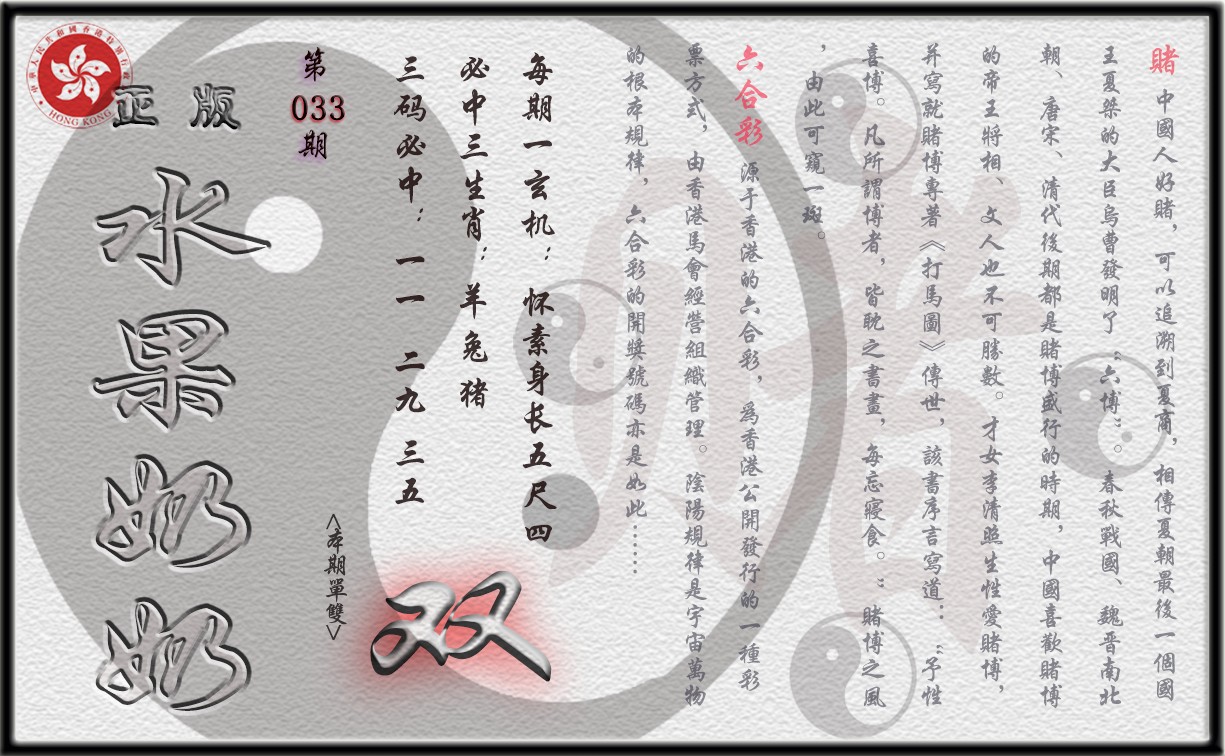 賭 中國人好賭，可以追溯到夏商，相傳夏朝最後一個國
王夏桀的大臣烏曹發明了“六博”。春秋戰國、魏晋南北
朝、唐宋、清代後期都是賭博盛行的時期，中國喜歡賭博
的帝王將相、文人也不可勝數。才女李清照生性愛賭博，
并寫就賭博專著《打馬圖》傳世，該書序言寫道：“予性
喜博。凡所謂博者，皆耽之書畫，每忘寢食。”賭博之風
，由此可窺一斑。
六合彩 源于香港的六合彩，爲香港公開發行的一種彩
票方式，由香港馬會經營組織管理。陰陽規律是宇宙萬物
的根本規律，六合彩的開獎號碼亦是如此……
每期一玄机：怀素身长五尺四
必中三生肖：羊兔猪
三码必中：一一 二九 三五
<本期單雙>
双
第
033
期
正版
水果奶奶
中華人民共和國香港特別行政區
HONG KONG